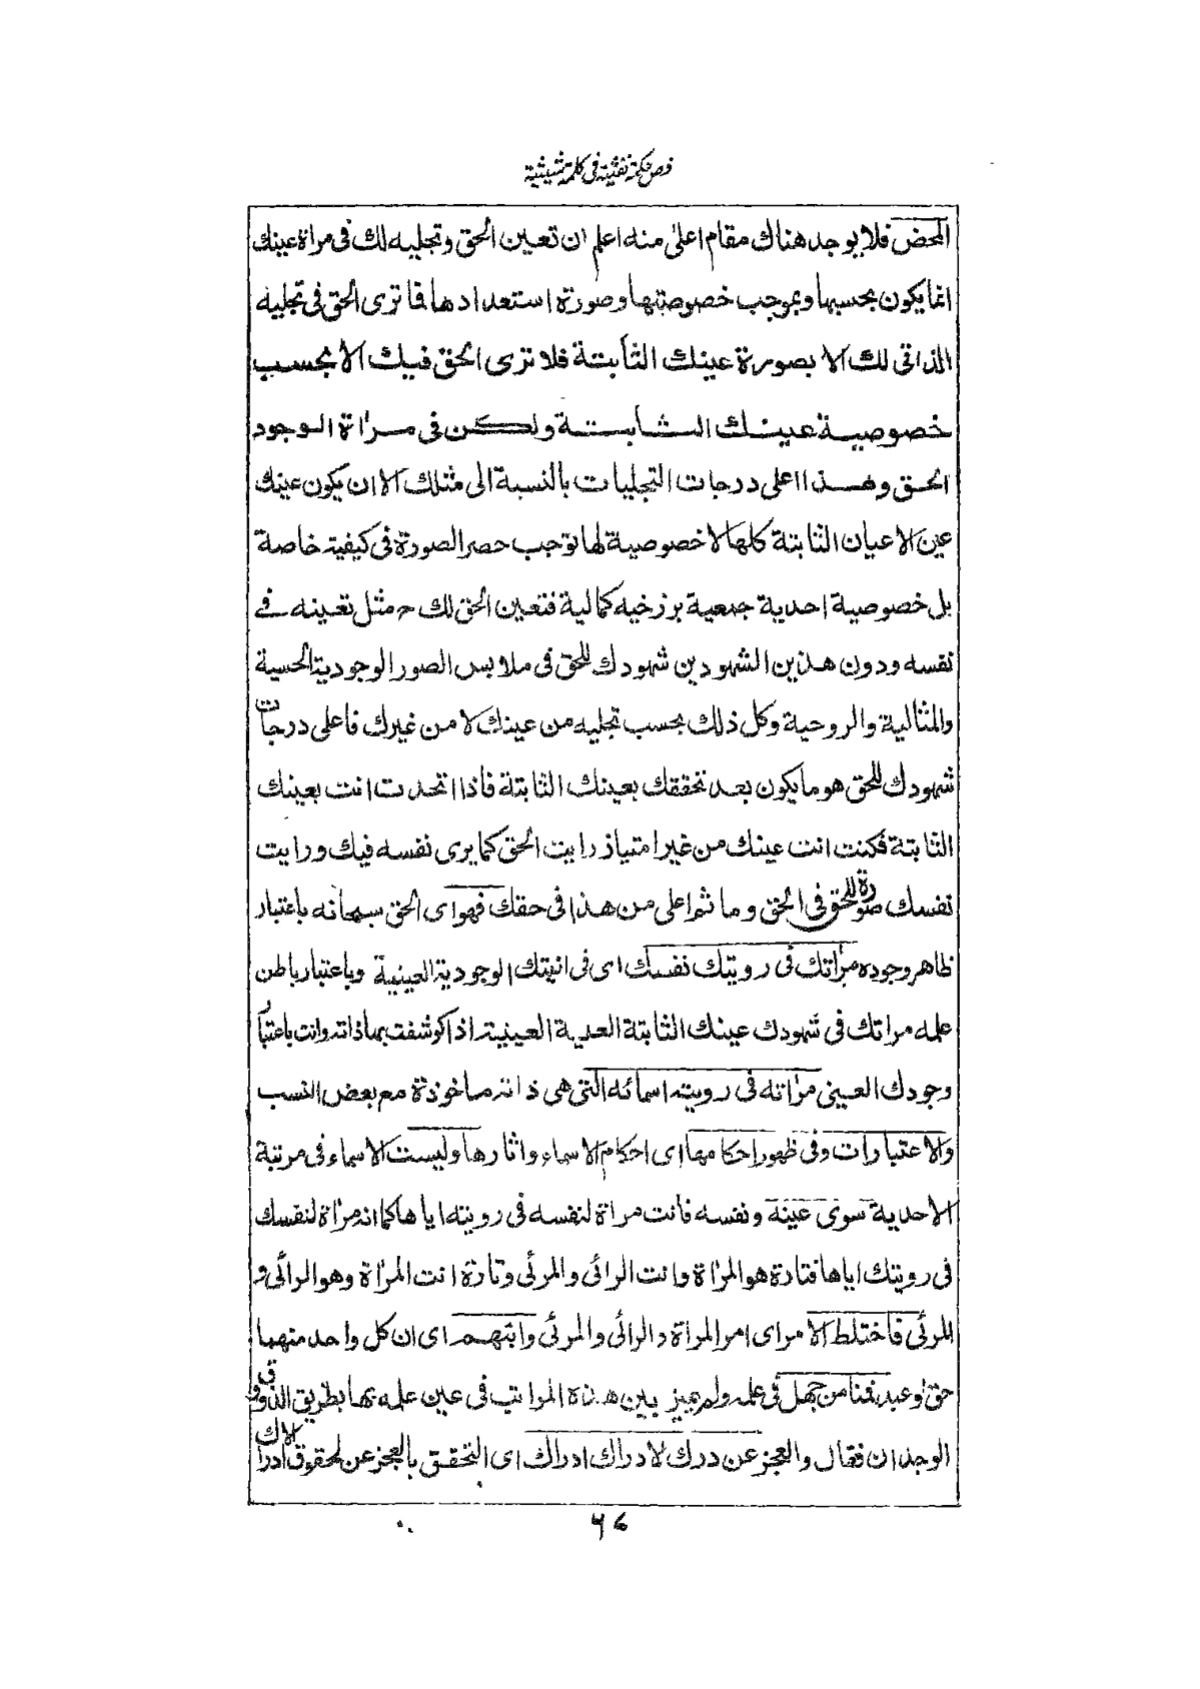 فص حكمة نفثية فى كلمة شيثية
المحض فلا يوجد هناك مقام اعلى منه اعلم ان تعين الحق وتجليه لك فى مراة عينك
انما يكون بحسبها وبموجب خصوصيتها وصورة استعدادها فما ترى الحق فى تجليه
الذاتى لك الا بصورة عينك الثابتة فلا ترى الحق فيك الا بحسب
خصوصية عينك الثابتة ولكن فى مراة الوجود
الحق وهذا اعلى درجات التجليات بالنسبة الى مثلك الا ان يكون عينك
عين الاعيان الثابتة كلها لا خصوصية لها توجب حصر الصورة فى كيفية خاصة
بل خصوصية احدية جمعية برزخيه كمالية فتعين الحق لك ح مثل تعينه فے
نفسه ودون هذين الشهودين شهودك للحق فى ملابس الصور الوجودية الحسية
والمثالية والروحية وكل ذلك بحسب تجليه من عينك لا من غيرك فاعلى درجات
شهودك للحق هو ما يكون بعد تحققك بعينك الثابتة فاذا اتحدت انت بعينك
الثابتة فكنت انت عينك من غير امتياز رايت الحق كما يرى نفسه فيك ورايت
نفسك صورة للحق فى الحق وما ثم اعلى من هذا فى حقك فهو اى الحق سبحانه باعتبار
ظاهر وجوده مرٰاتك فى رويتك نفسك اى فى انيتك الوجودية العينية وباعتبار باطن
علمه مراتك فى شهودك عينك الثابتة العلمية الغيبية اذا كوشفت بها ذاته وانت باعتبار
وجودك العينى مرٰاته فى رويته اسمائه التى هى ذاته ماخوذة مع بعض النسب
والاعتبارات وفى ظهور احكامها اى احكام الاسماء واثارها وليست الاسماء فى مرتبة
الاحدية سوى عينه ونفسه فانت مراة لنفسه فى رويته اياها كما انه مرٰاة لنفسك
فى رويتك اياها فتارة هو المرٰاة وانت الرائى والمرئى وتارة انت المرٰاة وهو الرائى و
المرئى فاختلط الامر اى امر المراة والرائى والمرئى وانبهم اى ان كل واحد منهما
حق او عبد فمنا من جهل فى علمه ولم يميز بين هذه المراتب فى عين علمه بها بطريق الذوق و
الوجدان فقال والعجز عن درك الادراك ادراك اى التحقق بالعجز عن لحقوق ادراك
٦٤